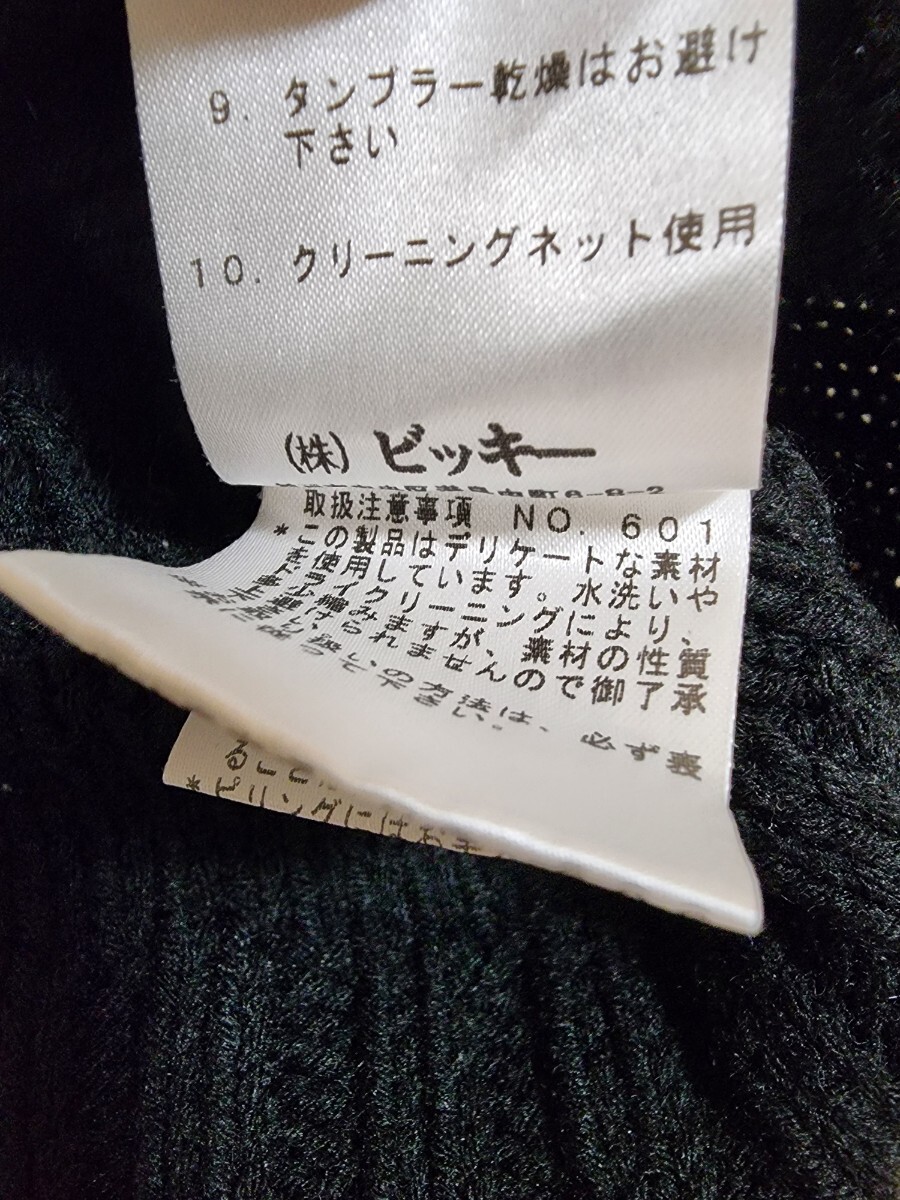 9. タンブラー乾燥はお避け
下さい
10. クリーニングネット使用
(株) ビッキー
町8-8-2
取扱注意事項 NO. 601
*この製品はデリケートな素材
を使用しています。水洗いや
ドライクリーニングにより、
縮みますが、素材の性質
上避けられませんので御了承
の方法は、必ず裏
さい。
ること
*ピリングにはお手